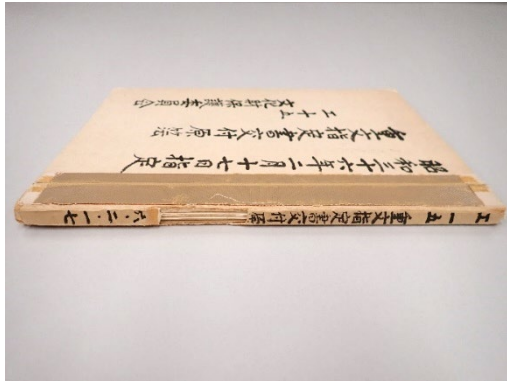 昭和三十六年二月十七日指定
重文指定書交付原簿
工ノ十五
文化財保護委員会
工一五 重文指定書交付原 六・二・一七